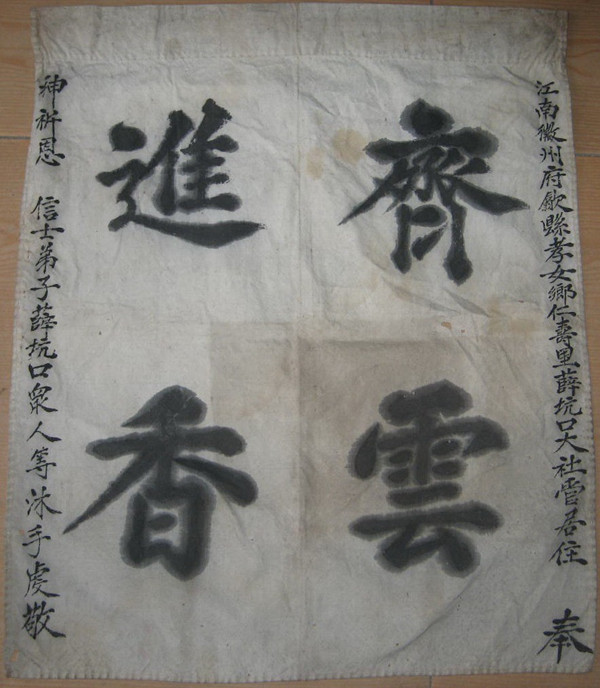 江南徽州府歙縣孝女鄉仁壽里薛坑口大社管居住 奉
齊雲
進香
神祈恩 信士弟子薛坑口眾人等沐手虔敬